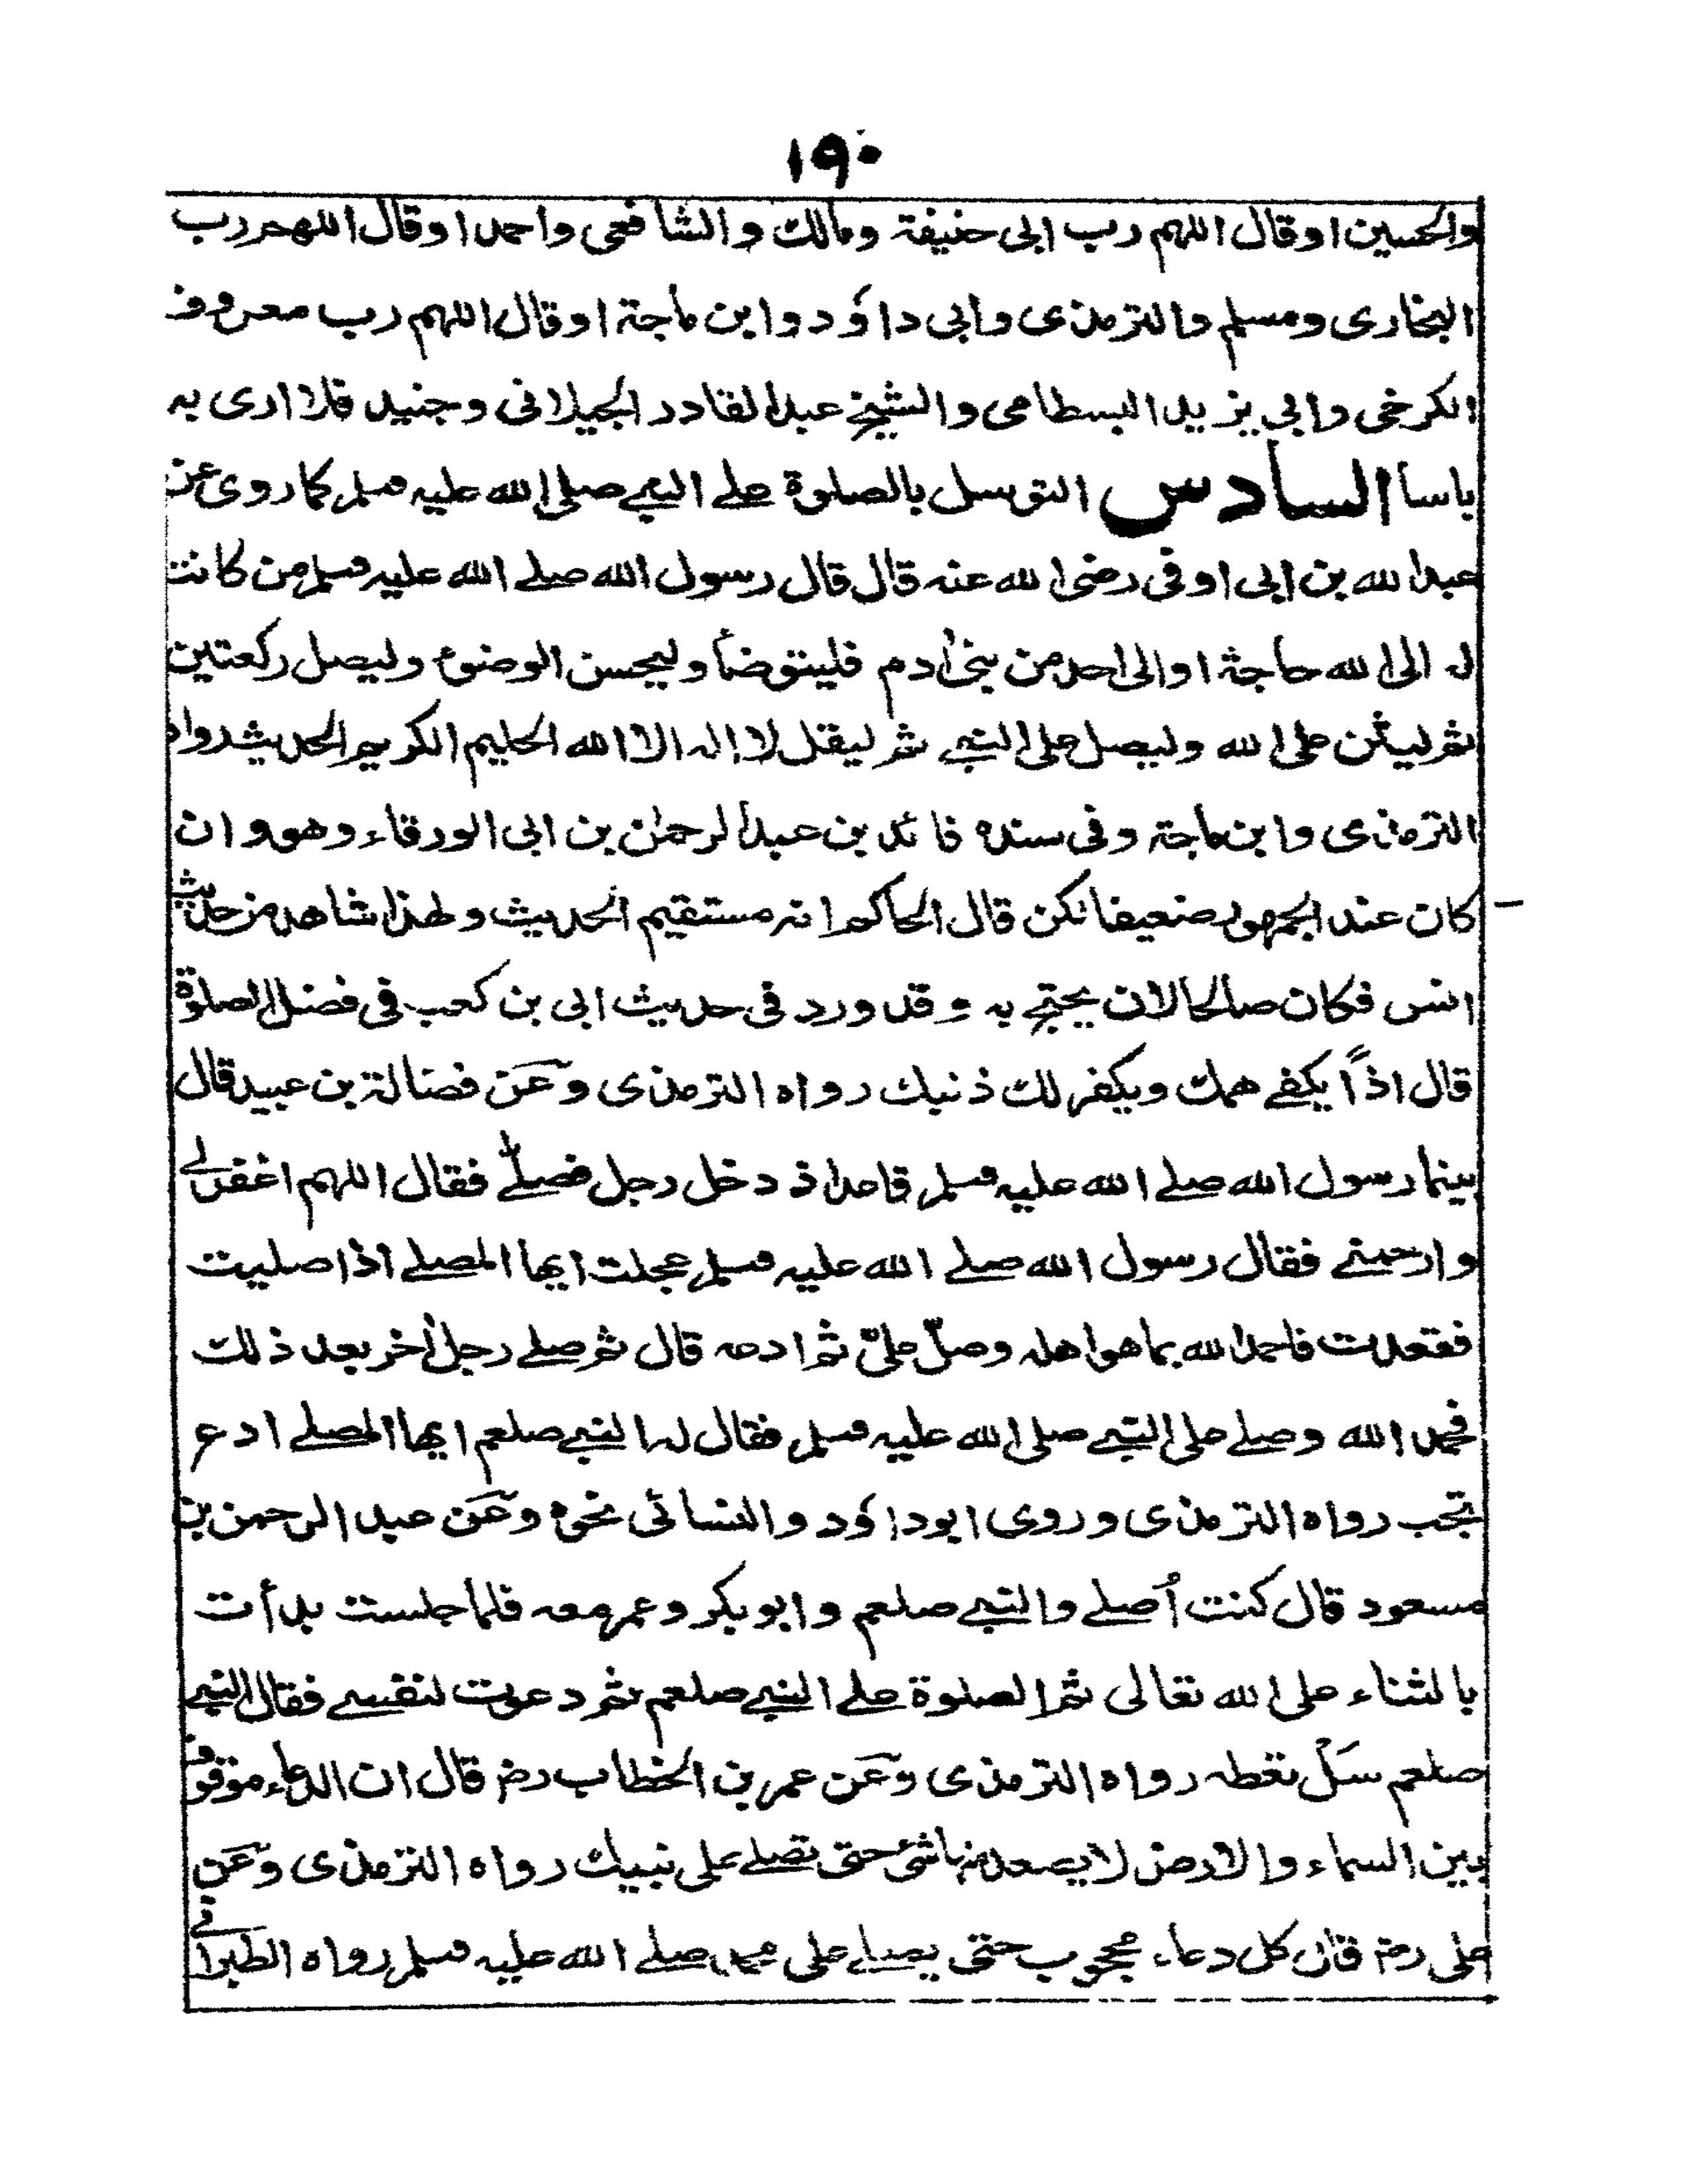 ١٩٠
والحسين او قال اللهم رب ابى حنيفة ومالك والشافعى واحمد او قال اللهم رب
البخارى ومسلم والترمذى وأبى داؤد وابن ماجة او قال اللهم رب معروف
الكرخى وابى يزيد البسطامى والشيخ عبد القادر الجيلانى وجنيد فلا ارى به
باسا السادس التوسل بالصلوة على النبى صلى الله عليه وسلم كما روى عن
عبد الله بن ابى اوفى رضى الله عنه قال قال رسول الله صلے الله عليه وسلم من كانت
له الى الله حاجة او الى احد من بنى اٰدم فليتوضأ وليحسن الوضوء وليصل ركعتين
ثم ليثن على الله وليصل على النبے ثم ليقل لا اله الا الله الحليم الكريم الحديث رواه
الترمذى وابن ماجة وفى سنده فائد بن عبد الرحمٰن بن ابى الورقاء وهو وان
كان عند الجمهور ضعيفا لكن قال الحاكم انه مستقيم الحديث ولهذا شاهد من حديث
انس فكان صالحا لان يحتج به وقد ورد فى حديث ابى بن كعب فى فضل الصلوة
قال اذاً يكفے همك ويكفر لك ذنبك رواه الترمذى وعن فضالة بن عبيد قال
بينما رسول الله صلے الله عليه وسلم قاعد اذ دخل رجل فصلّے فقال اللهم اغفر لے
وارحمنے فقال رسول الله صلے الله عليه وسلم عجلت ايها المصلے اذا صليت
فقعدت فاحمد الله بما هو اهله وصلّ علىّ ثم ادعه قال ثم صلے رجل اٰخر بعد ذلك
فحمد الله وصلے على النبے صلى الله عليه وسلم فقال له النبے صلعم ايها المصلے ادع
تجب رواه الترمذى وروى ابو داؤد والنسائى نحوه وعن عبد الرحمن بن
مسعود قال كنت أصلے والنبے صلعم وابو بكر وعمر معه فلما جلست بدأت
بالثناء على الله تعالى ثم الصلوة علے النبے صلعم ثم دعوت لنفسے فقال النبے
صلعم سل تعطه رواه الترمذى وعن عمر بن الخطاب رض قال ان الدعاء موقوف
بين السماء والارض لا يصعد منها شئ حتى تصلے على نبيك رواه الترمذى وعن
على رض قال كل دعاء محجوب حتى يصلے على محمد صلے الله عليه وسلم رواه الطبرانے